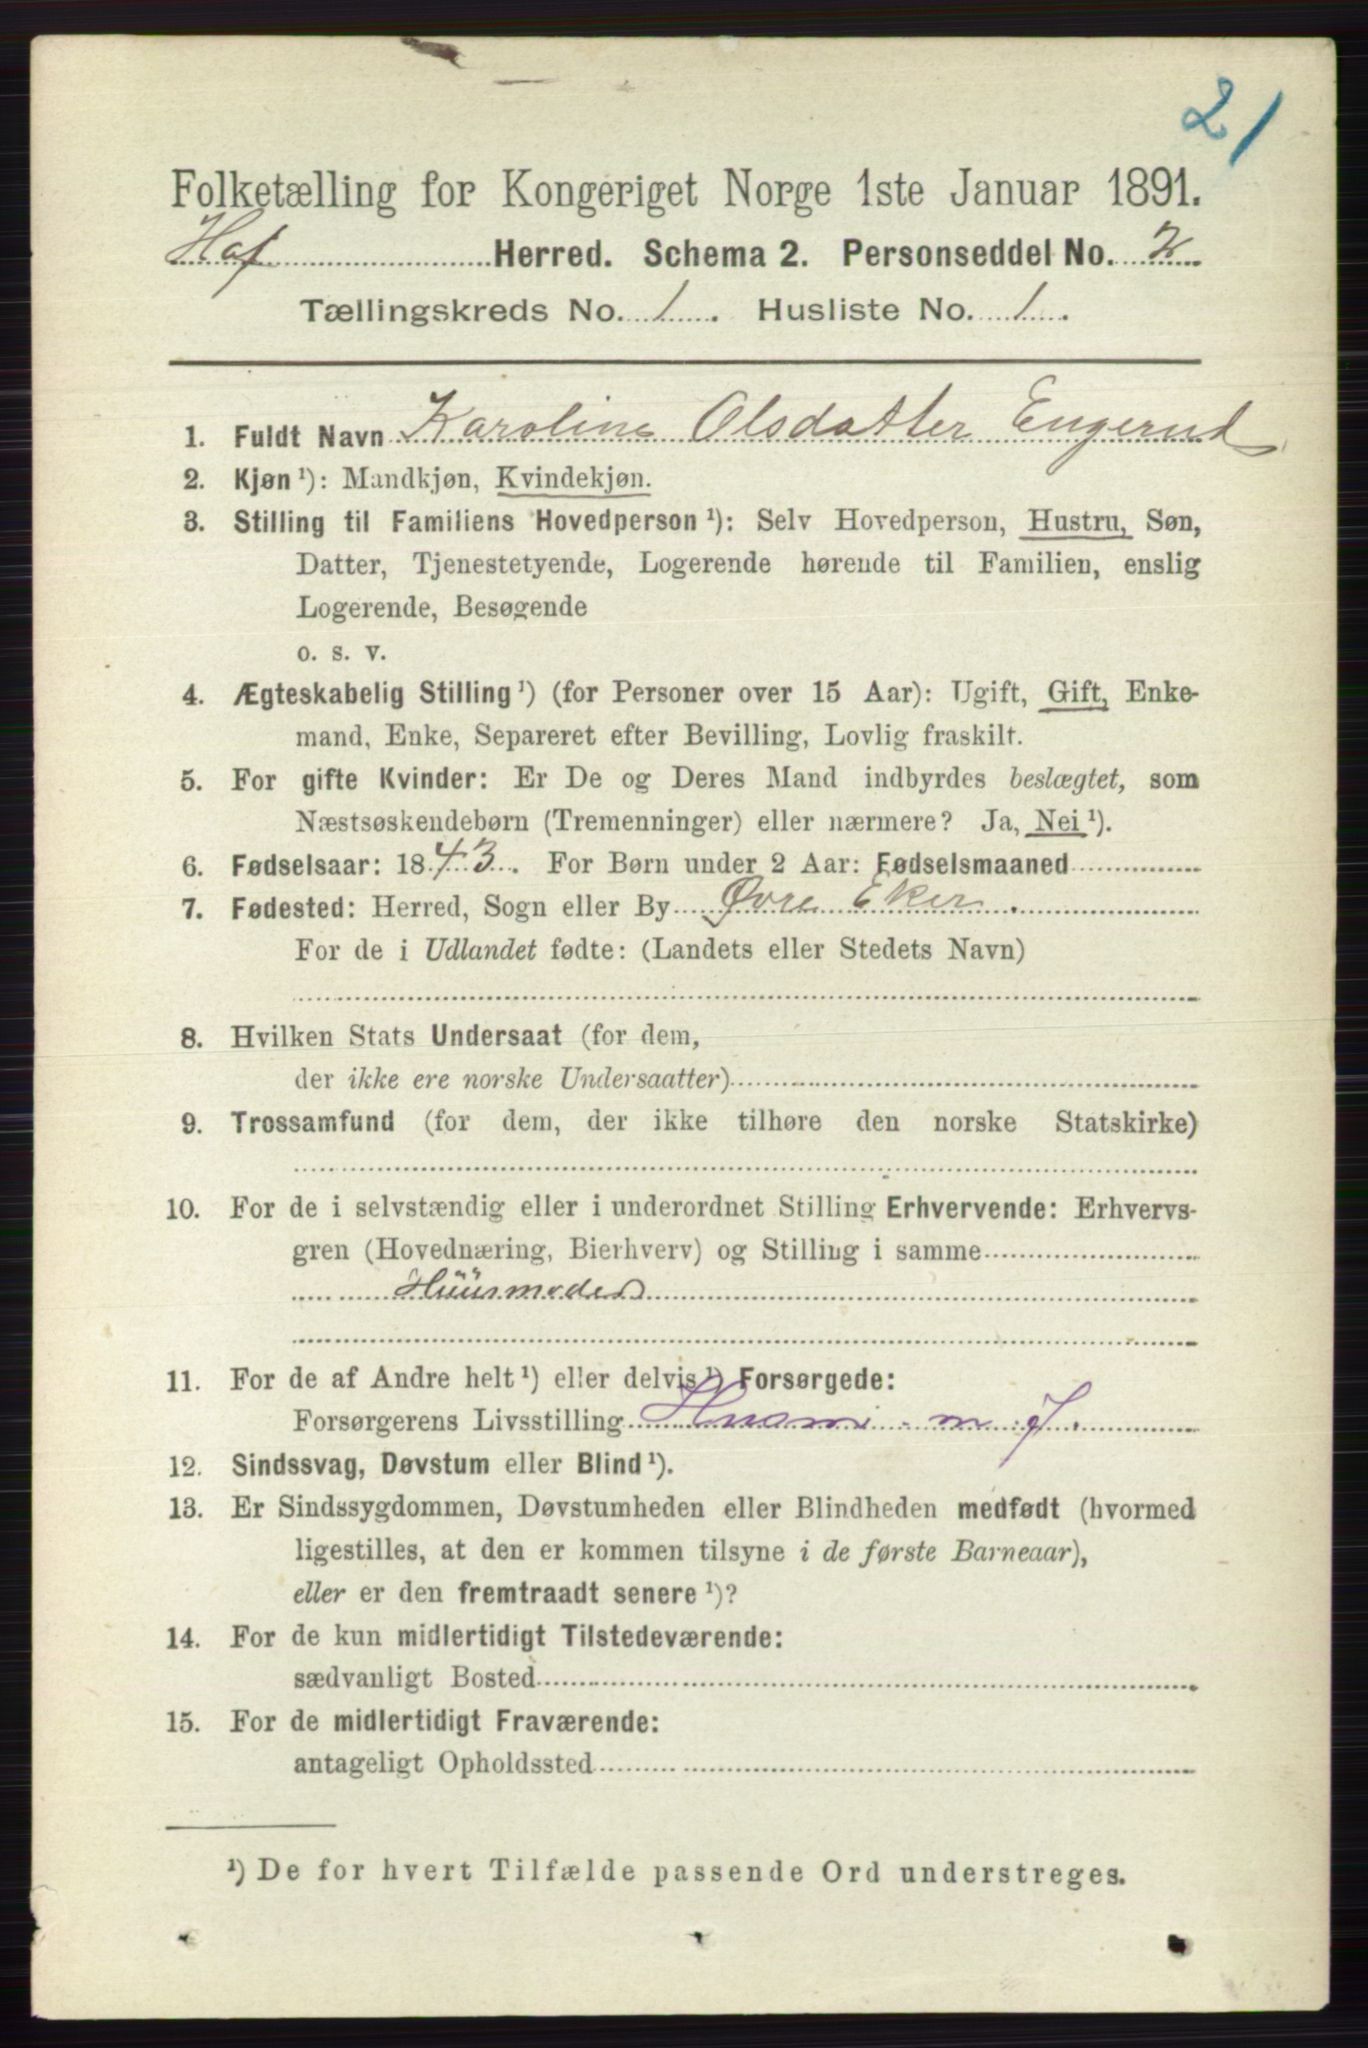 21
Folketælling for Kongeriget Norge 1ste Januar 1891.
Hof Herred. Schema 2. Personseddel No. 2
Tællingskreds No. 1. Husliste No. 1.
1. Fuldt Navn Karoline Olsdatter Engerud
2. Kjøn ¹): Mandkjøn, Kvindekjøn.
3. Stilling til Familiens Hovedperson ¹): Selv Hovedperson, Hustru, Søn,
Datter, Tjenestetyende, Logerende hørende til Familien, enslig
Logerende, Besøgende
o. s. v.
4. Ægteskabelig Stilling ¹) (for Personer over 15 Aar): Ugift, Gift, Enke-
mand, Enke, Separeret efter Bevilling, Lovlig fraskilt.
5. For gifte Kvinder: Er De og Deres Mand indbyrdes beslægtet, som
Næstsøskendebørn (Tremenninger) eller nærmere? Ja, Nei ¹).
6. Fødselsaar: 1843. For Børn under 2 Aar: Fødselsmaaned
7. Fødested: Herred, Sogn eller By Øvre Eker.
For de i Udlandet fødte: (Landets eller Stedets Navn)
8. Hvilken Stats Undersaat (for dem,
der ikke ere norske Undersaatter)
9. Trossamfund (for dem, der ikke tilhøre den norske Statskirke)
10. For de i selvstændig eller i underordnet Stilling Erhvervende: Erhvervs-
gren (Hovednæring, Bierhverv) og Stilling i samme
Huusmoder
11. For de af Andre helt ¹) eller delvis ¹) Forsørgede:
Forsørgerens Livsstilling Husm. m. J.
12. Sindssvag, Døvstum eller Blind ¹).
13. Er Sindssygdommen, Døvstumheden eller Blindheden medfødt (hvormed
ligestilles, at den er kommen tilsyne i de første Barneaar),
eller er den fremtraadt senere ¹)?
14. For de kun midlertidigt Tilstedeværende:
sædvanligt Bosted
15. For de midlertidigt Fraværende:
antageligt Opholdssted
¹) De for hvert Tilfælde passende Ord understreges.